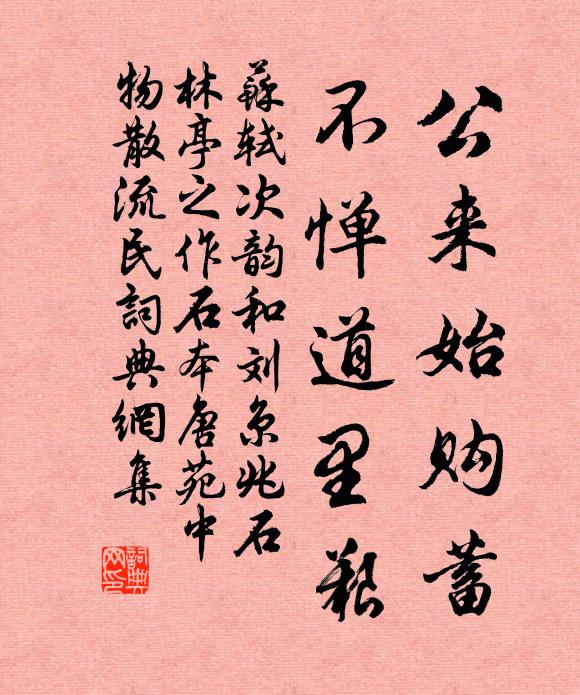 公来始购蓄
不惮道里艰
蘇轼次韵和刘京兆石
林亭之作石本唐苑中
物散流民詞典網集
詞典网印